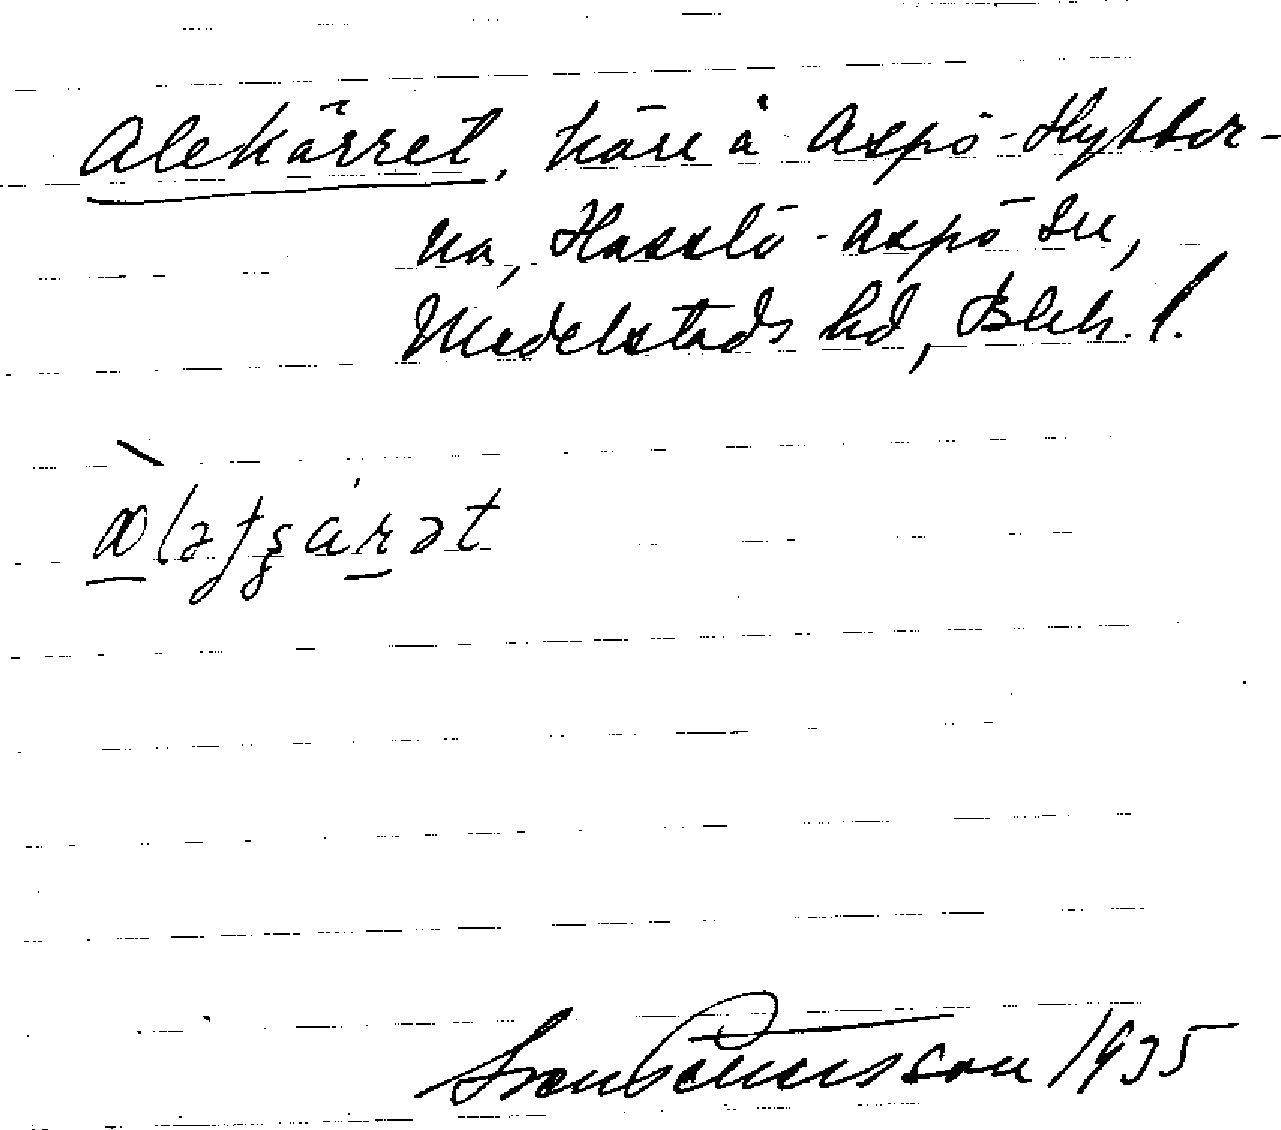 Alekärret, kärr å Aspö-Hyttor-
na, Hasslö-Aspö sn,
Medelstads hd, Blek. l.
Sven Benson 1935